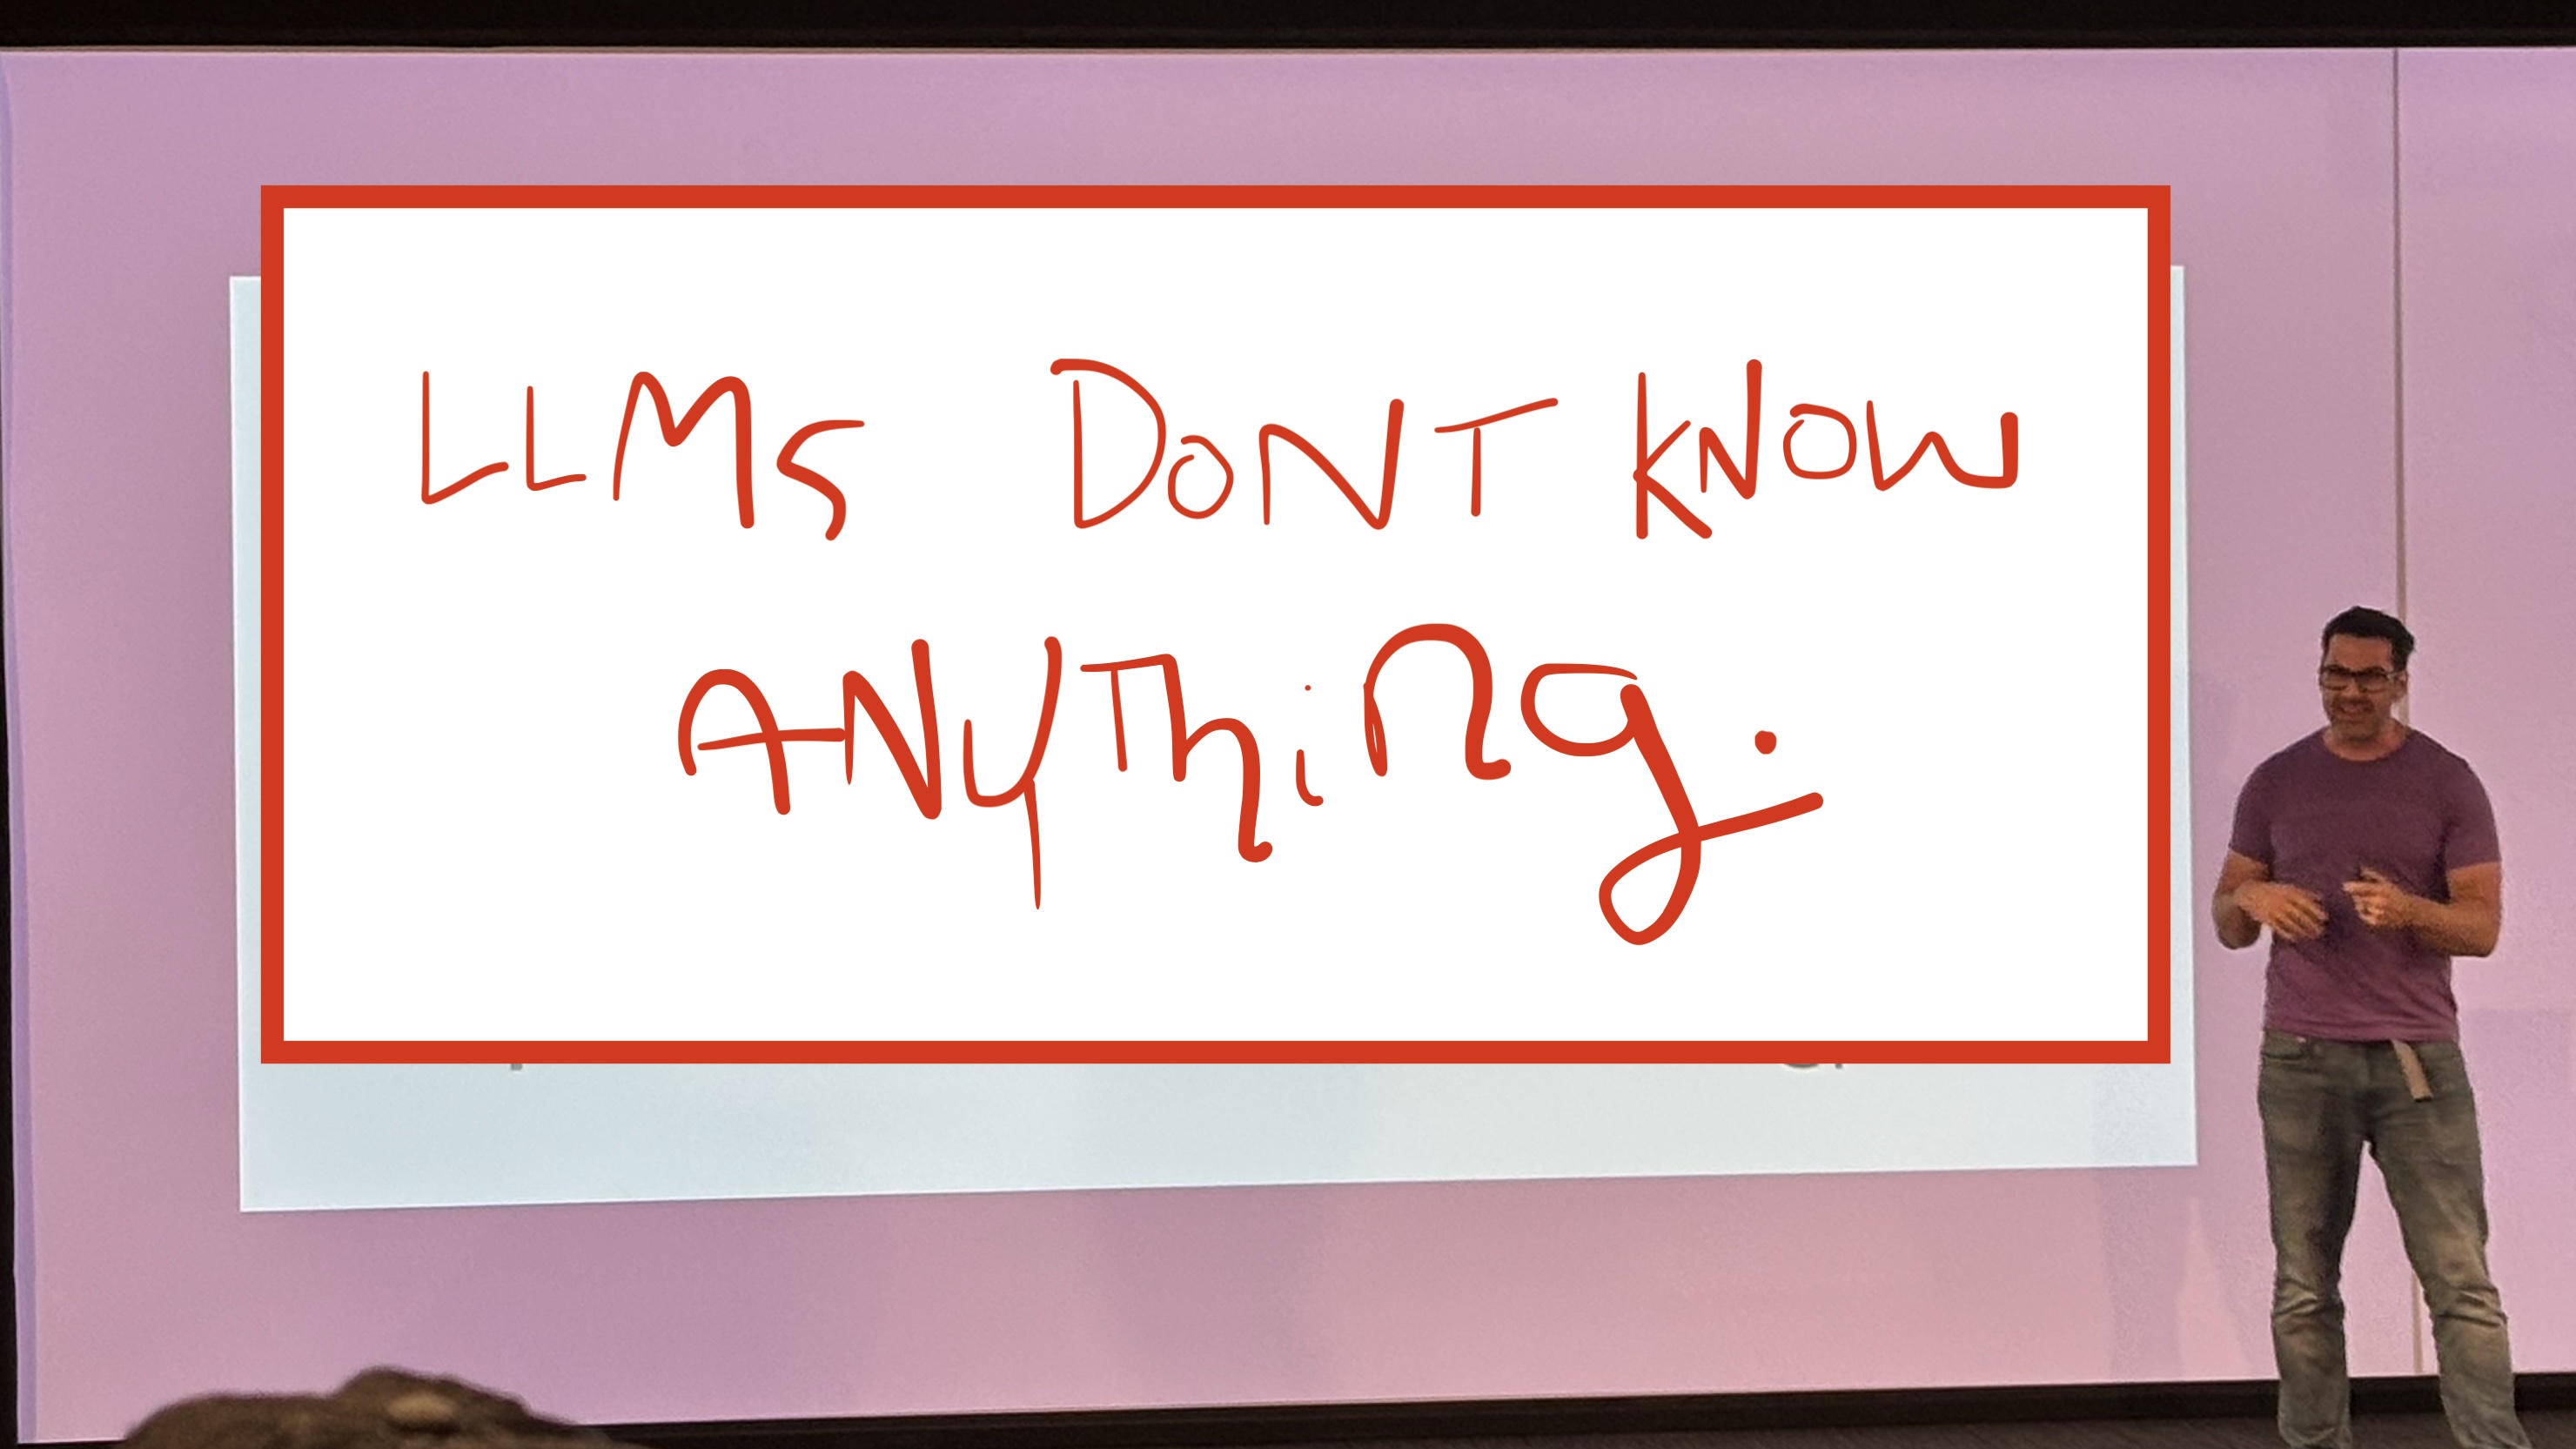 LLMs DONT KNOW
ANYThiNg.